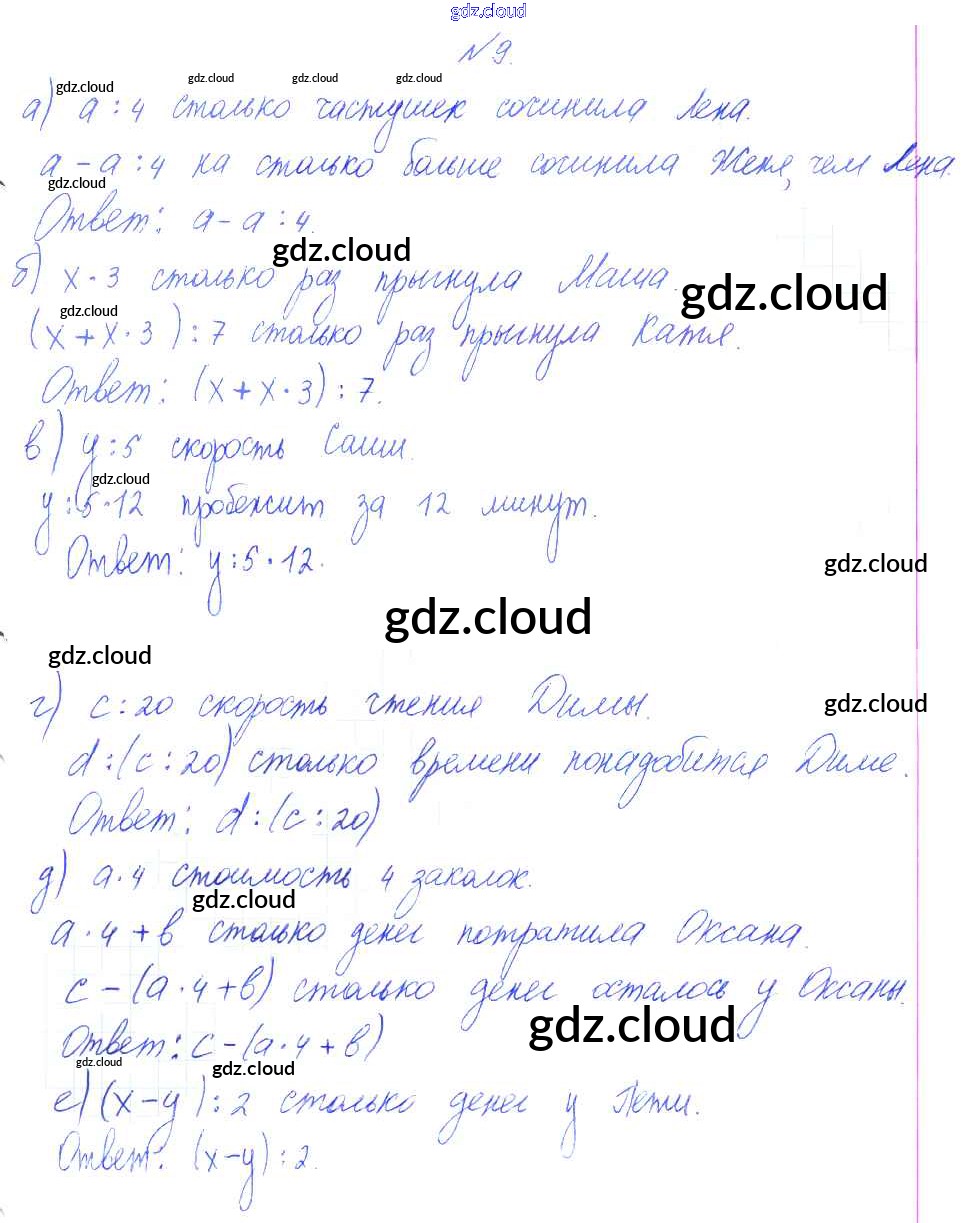 gdz.cloud
№ 9.
gdz.cloud gdz.cloud gdz.cloud gdz.cloud
а) а : 4 столько частушек сочинила Лена.
а - а : 4 на столько больше сочинила Женя, чем Лена.
gdz.cloud
Ответ: а - а : 4.
gdz.cloud
б) х · 3 столько раз прыгнула Маша.
gdz.cloud
gdz.cloud
(х + х · 3) : 7 столько раз прыгнула Катя.
Ответ: (х + х · 3) : 7.
в) у : 5 скорость Саши.
gdz.cloud
у : 5 · 12 пробежит за 12 минут.
Ответ: у : 5 · 12.
gdz.cloud
gdz.cloud
gdz.cloud
г) с : 20 скорость чтения Димы.
gdz.cloud
d : (с : 20) столько времени понадобится Диме.
Ответ: d : (с : 20)
д) а · 4 стоимость 4 заколок.
gdz.cloud
а · 4 + в столько денег потратила Оксана.
с - (а · 4 + в) столько денег осталось у Оксаны.
gdz.cloud
Ответ: с - (а · 4 + в)
gdz.cloud gdz.cloud
е) (х - у) : 2 столько денег у Пети.
Ответ: (х - у) : 2.